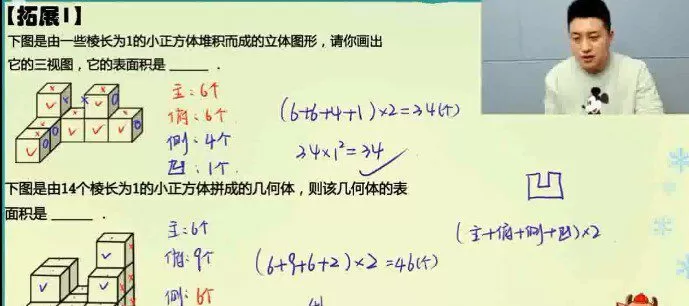 【拓展1】
下图是由一些棱长为1的小正方体堆积而成的立体图形，请你画出
它的三视图，它的表面积是______．
主：6个
俯：6个
侧：4个
凹：1个
(6+6+4+1)×2=34(个)
34×1²=34
下图是由14个棱长为1的小正方体拼成的几何体，则该几何体的表
面积是______．
主：6个
俯：9个
侧：6个
(6+9+6+2)×2=46(个)
(主+俯+侧+凹)×2